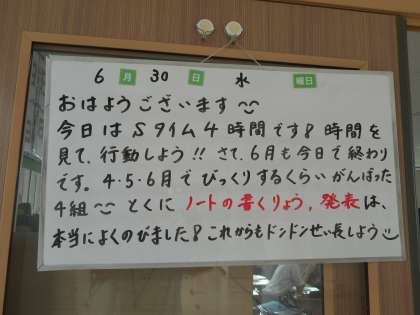 6 月 30 日 水 曜日
おはようございます
今日はSタイム4時間です!時間を
見て、行動しよう!!さて、6月も今日で終わり
です。4・5・6月でびっくりするくらいがんばった
4組 とくにノートの書くりょう,発表は、
本当によくのびました!これからもドンドンせい長しよう